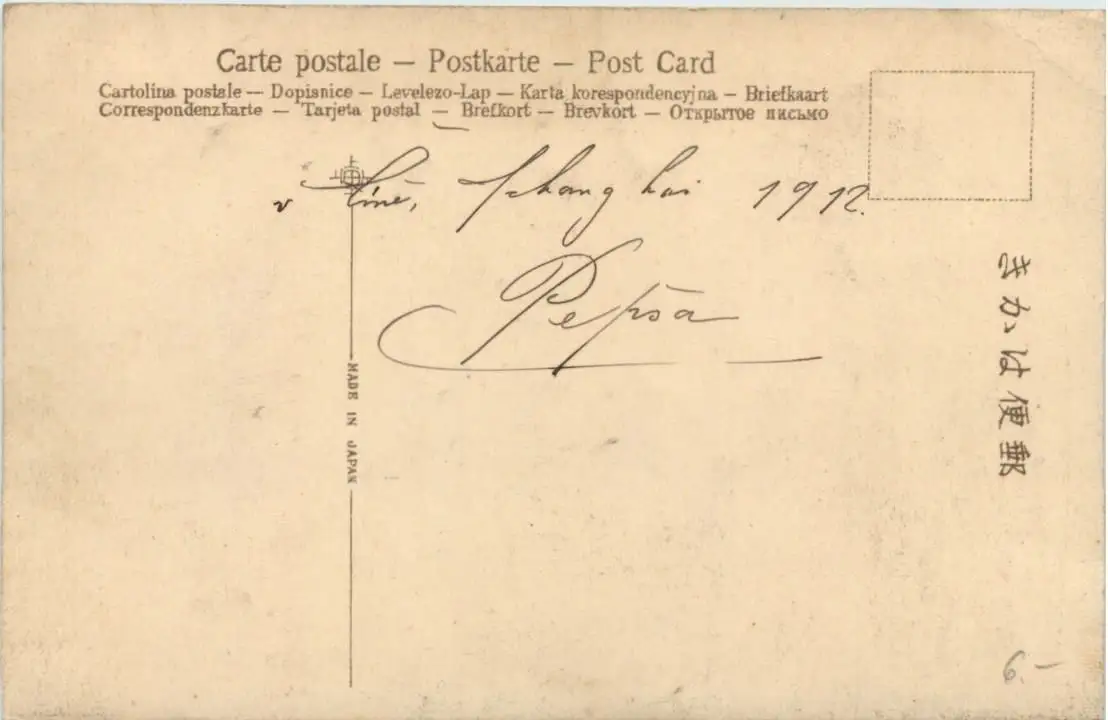 Carte postale — Postkarte — Post Card
Cartolina postale — Dopisnice — Levelezo-Lap — Karta korespondencyjna — Briefkaart
Correspondenzkarte — Tarjeta postal — Brefkort — Brevkort — Открытое письмо
v Číně, Schanghai 1912.
Pepša
MADE IN JAPAN
きかは便郵
6.-